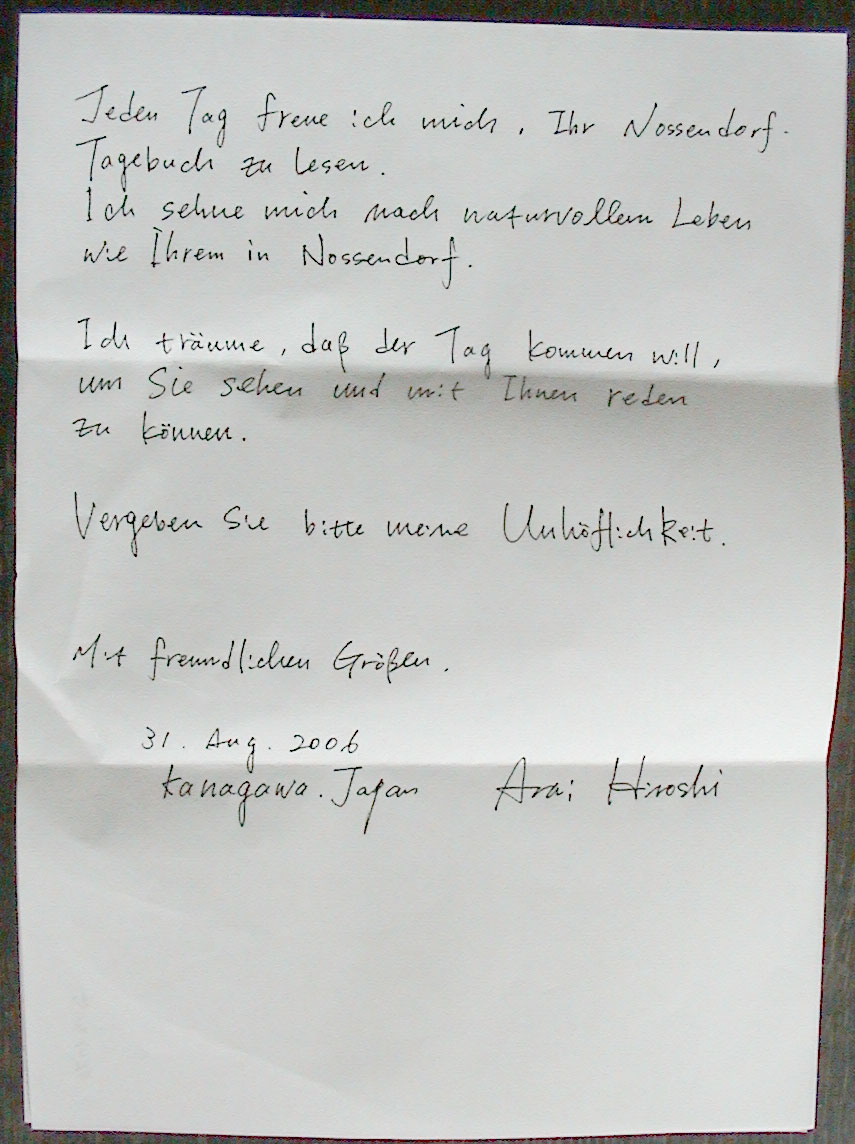 Jeden Tag freue ich mich, Ihr Nossendorf-
Tagebuch zu lesen.
Ich sehne mich nach naturvollem Leben
wie Ihrem in Nossendorf.
Ich träume, daß der Tag kommen will,
um Sie sehen und mit Ihnen reden
zu können.
Vergeben Sie bitte meine Unhöflichkeit.
Mit freundlichen Größen.
31. Aug. 2006
Kanagawa. Japan Arai Hiroshi